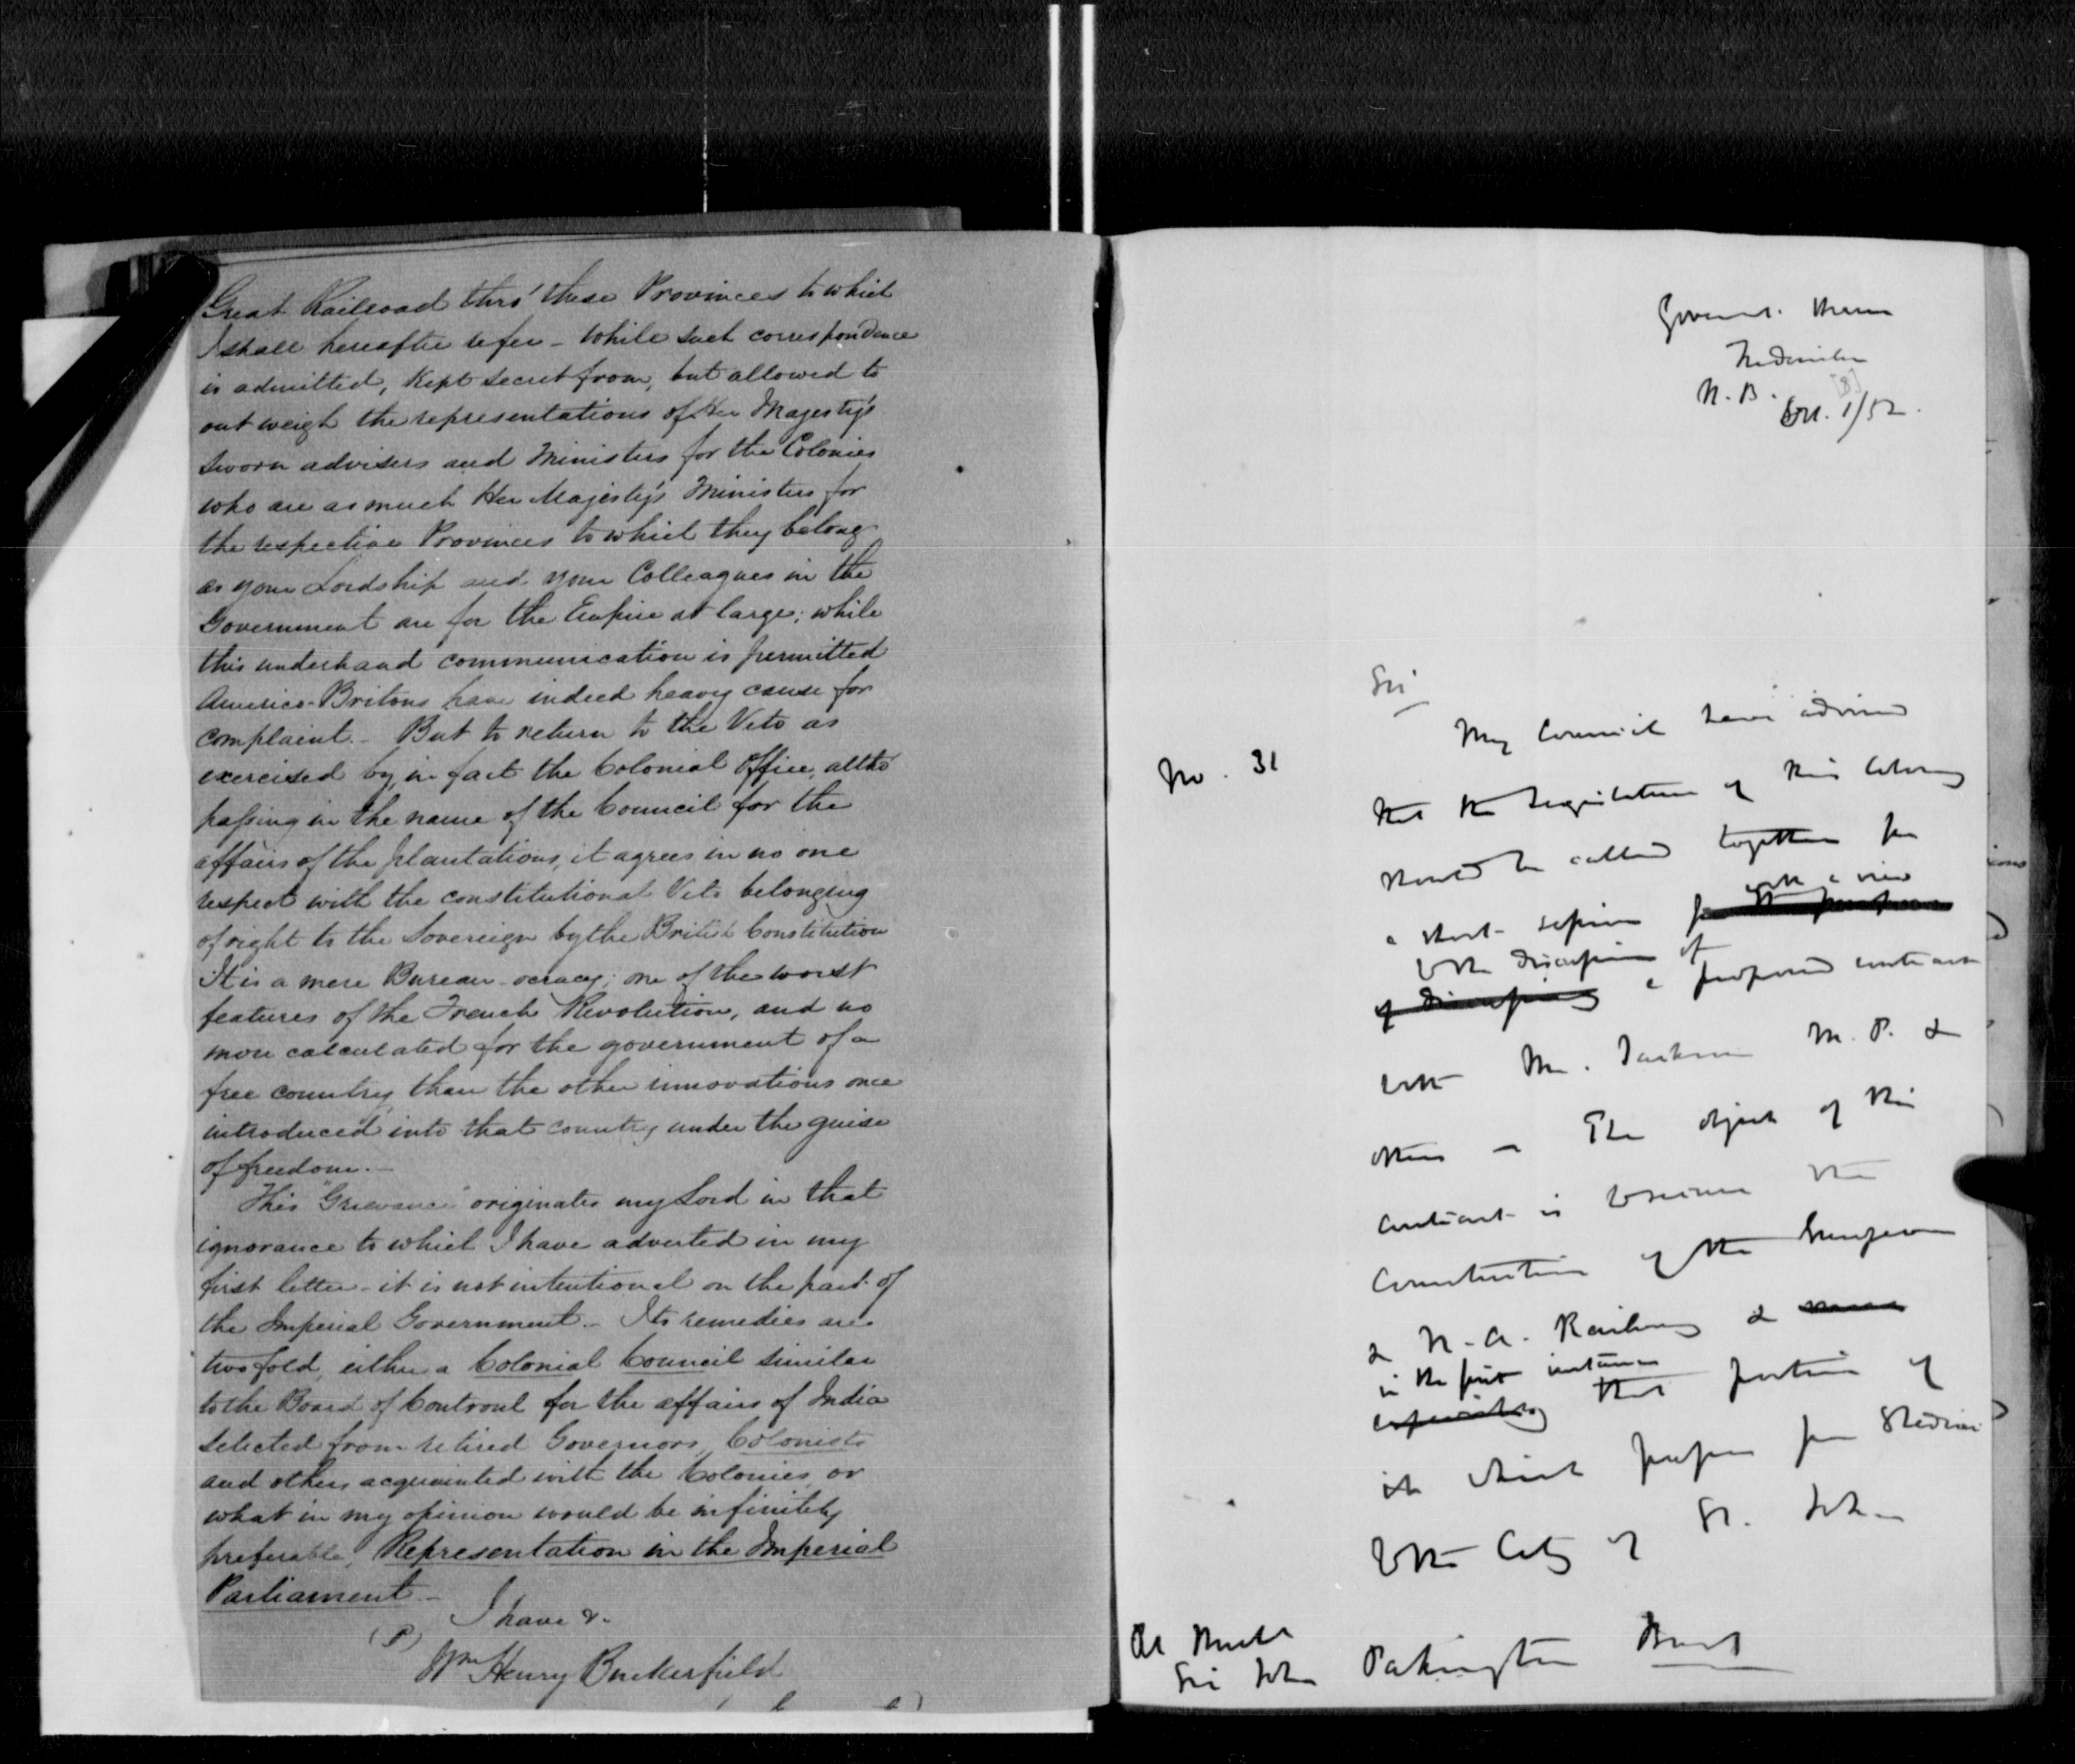 Great Railroad thro' these Provinces to which
I shall hereafter refer - while such correspondence
is admitted, kept secret from, but allowed to
out weigh the representations of Her Majesty's
sworn advisers and Ministers for the Colonies
who are as much Her Majesty's Ministers for
the respective Provinces to which they belong
as your Lordship and your Colleagues in the
Government are for the Empire at large; while
this underhand communication is permitted
Americo-Britons have indeed heavy cause for
complaint. - But to return to the Veto as
exercised by, in fact the Colonial Office, altho'
passing in the name of the Council for the
affairs of the plantations, it agrees in no one
respect with the constitutional Veto belonging
of right to the Sovereign by the British Constitution
It is a mere Bureau-ocracy; one of the worst
features of the French Revolution, and no
more calculated for the government of a
free country than the other innovations once
introduced into that country under the guise
of freedom. -
This "Grievance" originates my Lord in that
ignorance to which I have adverted in my
first letter - it is not intentional on the part of
the Imperial Government. - Its remedies are
two fold, either a Colonial Council similar
to the Board of Controul for the affairs of India
selected from retired Governors, Colonists
and others acquainted with the Colonies, or
what in my opinion would be infinitely
preferable, Representation in the Imperial
Parliament. -
I have &.
Wm Henry Buckerfield
Governt. House
Fredericton
N.B. [8]
Oct. 1/52.
Sir
No. 31
My Council have advised
that the Legislature of this Colony
should be called together for
with a view
a short session for the purpose
to the discussion of
of discussing a proposed contract
with Mr. Jackson M.P. &
others - The object of this
contract is to secure the
Construction of the European
& N.A. Railway &
in the first instance
especially that portion of
it which passes from Shediac
to the City of St. John
Rt Honble
Sir John Pakington Bart